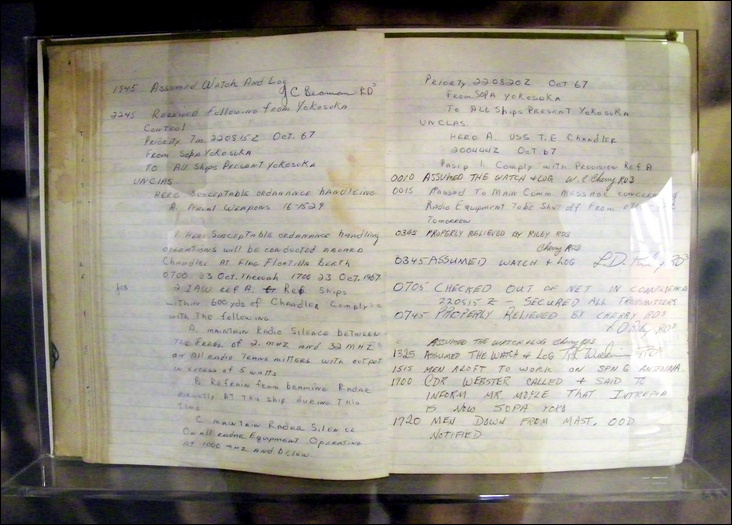 1945 Assumed Watch And Log
J C Beaman RD3
2245 Received Following from Yokosuka
Control
Priority Tm 220815Z Oct. 67
From Sopa Yokosuka
To All Ships Present Yokosuka
UNCLAS
Hero Susceptable ordnance handleing
A. Naval Weapons 16-1529
1. Hero Susceptable ordnance handling
operations will be conducted aboard
Chandler At Berth
0700 23 Oct. Through 1700 23 Oct. 1967
2 IAW ref A. Ships
within 600 yds of Chandler Comply
with The following
A. maintain Radio Silence between
The Freqs of 2. mHZ and 32 mHZ
on All radio Transmitters with output
in excess of 5 watts
B. Refrain from beaming Radar
directly At The ship during This
Time
C. maintain Radar Silence
On all radar Equipment Operating
At 1000 mHZ and below
Priority 220820Z Oct 67
From SOPA Yokosuka
To All Ships Present Yokosuka
UNCLAS.
Hero A. USS T.E. Chandler
200444Z Oct 67
1. Comply with Provision Ref A
0010 ASSUMED THE WATCH & LOG RD3
0015 Passed To Main Comm Message
Radio Equipment To be Shut off From
Tomorrow
0345 PROPERLY RELIEVED BY RD3
RD3
0345 ASSUMED WATCH & LOG L.D. RD3
0705 CHECKED OUT OF NET IN
220815Z – SECURED ALL TRANSMITTERS
0745 PROPERLY RELIEVED BY CHERRY RD3
RD3
ASSUMED THE WATCH & LOG RD3
1325 ASSUMED THE WATCH & LOG
1515 MEN ALOFT TO WORK ON SPN 6 ANTENNA
1700 CDR WEBSTER CALLED & SAID TO
INFORM MR. THAT INTREPID
IS NOW SOPA YOKO
1720 MEN DOWN FROM MAST, OOD
NOTIFIED